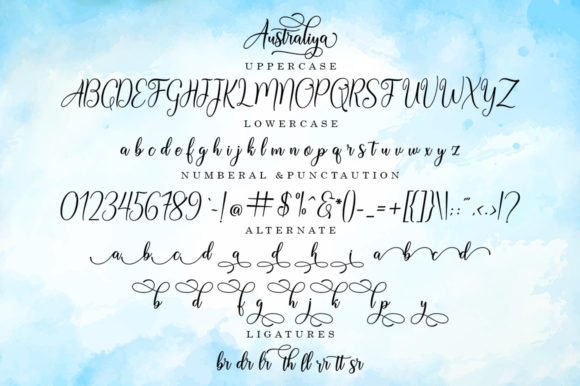 Australiya
UPPERCASE
ABCDEFGHIJKLMNOPQRSTUVWXYZ
LOWERCASE
a b c d e f g h i j k l m n o p q r s t u v w x y z
NUMBERAL &PUNCTAUTION
0123456789`~!@#$%^&*()-_=+[{]}\|;:'",<.>/?
ALTERNATE
a b c d g d h i a b c d
b d f g h j k l p y
LIGATURES
br dr lr th ll rr tt sr